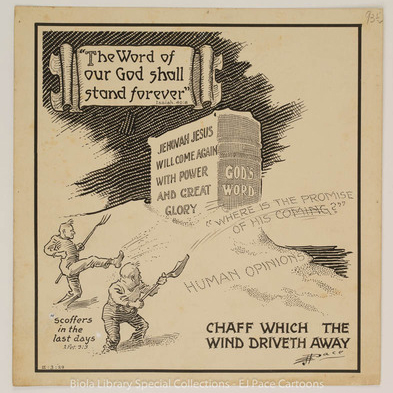 "The Word of
our God shall
stand forever"
Isaiah 40:8
JEHOVAH JESUS
WILL COME AGAIN
WITH POWER
AND GREAT
GLORY
GOD'S
WORD
"WHERE IS THE PROMISE
OF HIS COMING?"
HUMAN OPINIONS
"Scoffers
in the
last days
CHAFF WHICH THE
WIND DRIVETH AWAY
EJPace
Biola Library Special Collections - EJ Pace Cartoons